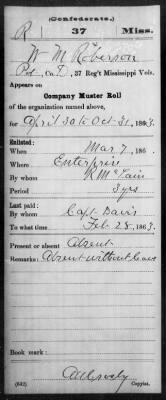 (Confederate.)
R 37 Miss.
W M Roberson
Pvt, Co. D, 37 Reg't Mississippi Vols.
Appears on
Company Muster Roll
of the organization named above,
for April 30 to Oct 31, 1863.
Enlisted:
When Mar 7, 186
Where Enterprise
By whom R McLain
Period 3 yrs
Last paid:
By whom Capt Davis
To what time Feb 28, 1863.
Present or absent Absent
Remarks: Absent without leave
Book mark:
(642) Copyist.